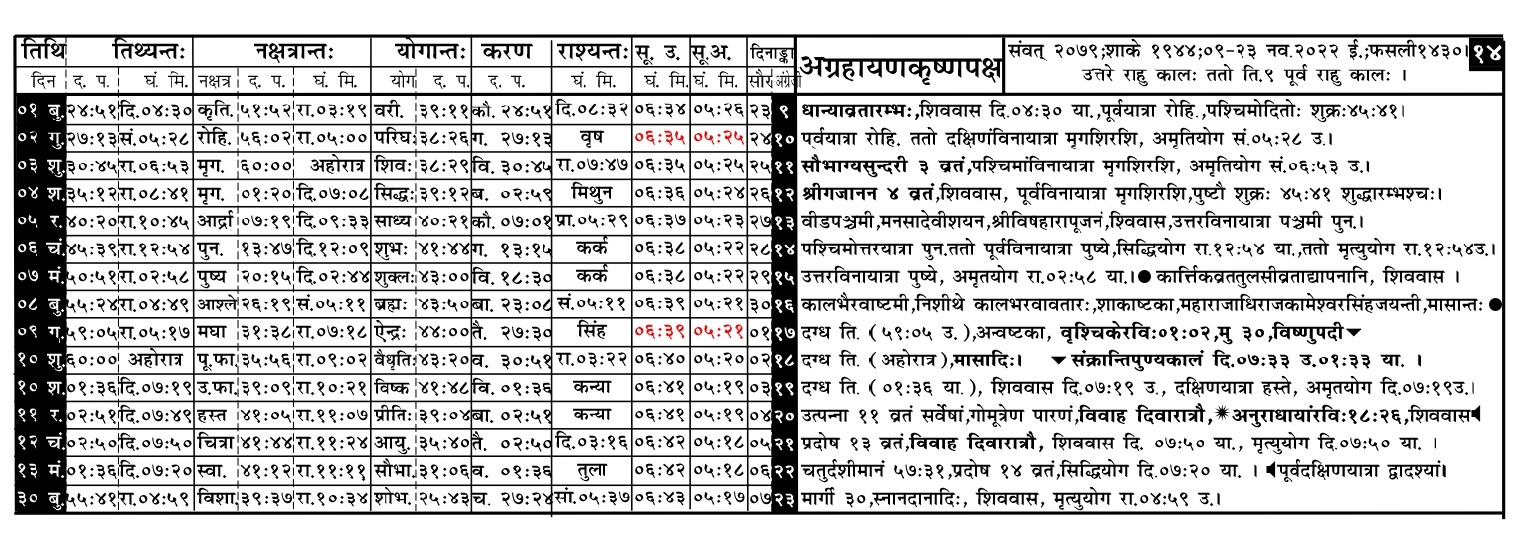 तिथि तिथ्यन्तः नक्षत्रान्तः योगान्तः करण राश्यन्तः सू. उ. सू.अ. दिनाङ्का अग्रहायणकृष्णपक्ष संवत् २०७९;शाके १९४४;०९-२३ नव.२०२२ ई.;फसली१४३०। १४
दिन द. प. घं. मि. नक्षत्र द. प. घं. मि. योग द. प. द. प. घं. मि. घं. मि. घं. मि. सौर अंग्रेजी उत्तरे राहु कालः ततो ति.९ पूर्व राहु कालः ।
०१ बु. २४:५१ दि.०४:३० कृति. ५१:५२ रा.०३:१९ वरी. ३९:११ कौ. २४:५१ दि.०८:३२ ०६:३४ ०५:२६ २३ ९ धान्याव्रतारम्भः,शिववास दि.०४:३० या.,पूर्वयात्रा रोहि.,पश्चिमोदितोः शुक्रः४५:४१।
०२ गु. २७:१३ सं.०५:२८ रोहि. ५६:०२ रा.०५:०० परिघः ३८:२६ ग. २७:१३ वृष ०६:३५ ०५:२५ २४ १० पर्वयात्रा रोहि. ततो दक्षिणंविनायात्रा मृगशिरशि, अमृतियोग सं.०५:२८ उ.।
०३ शु. ३०:४५ रा.०६:५३ मृग. ६०:०० अहोरात्र शिवः ३८:२९ वि. ३०:४५ रा.०७:४७ ०६:३५ ०५:२५ २५ ११ सौभाग्यसुन्दरी ३ व्रतं,पश्चिमांविनायात्रा मृगशिरशि, अमृतियोग सं.०६:५३ उ.।
०४ श. ३५:१२ रा.०८:४१ मृग. ०१:२० दि.०७:०८ सिद्धः ३९:१२ ब. ०२:५९ मिथुन ०६:३६ ०५:२४ २६ १२ श्रीगजानन ४ व्रतं,शिववास, पूर्वविनायात्रा मृगशिरशि,पुष्टौ शुक्रः ४५:४१ शुद्धारम्भश्चः।
०५ र. ४०:२० रा.१०:४५ आर्द्रा ०७:१९ दि.०९:३३ साध्य ४०:२१ कौ. ०७:०१ प्रा.०५:२९ ०६:३७ ०५:२३ २७ १३ वीडपञ्चमी,मनसादेवीशयन,श्रीविषहारापूजनं,शिववास,उत्तरविनायात्रा पञ्चमी पुन.।
०६ चं. ४५:३९ रा.१२:५४ पुन. १३:४७ दि.१२:०९ शुभः ४१:४४ ग. १३:१५ कर्क ०६:३८ ०५:२२ २८ १४ पश्चिमोत्तरयात्रा पुन.ततो पूर्वविनायात्रा पुष्ये,सिद्धियोग रा.१२:५४ या,ततो मृत्युयोग रा.१२:५४उ.।
०७ मं. ५०:५१ रा.०२:५८ पुष्य २०:१५ दि.०२:४४ शुक्लः ४३:०० वि. १८:३० कर्क ०६:३८ ०५:२२ २९ १५ उत्तरविनायात्रा पुष्ये, अमृतयोग रा.०२:५८ या.।● कार्त्तिकव्रततुलसीव्रताद्यापनानि, शिववास ।
०८ बु. ५५:२४ रा.०४:४९ आश्ले २६:१९ सं.०५:११ ब्रह्मः ४३:५० बा. २३:०८ सं.०५:११ ०६:३९ ०५:२१ ३० १६ कालभैरवाष्टमी,निशीथे कालभरवावतारः,शाकाष्टका,महाराजाधिराजकामेश्वरसिंहजयन्ती,मासान्तः ●
०९ ग. ५९:०५ रा.०५:१७ मघा ३१:३८ रा.०७:१८ ऐन्द्रः ४४:०० तै. २७:३० सिंह ०६:३९ ०५:२१ ०१ १७ दग्ध ति. (५९:०५ उ.),अन्वष्टका, वृश्चिकेरविः०१:०२,मु ३०,विष्णुपदी
१० शु. ६०:०० अहोरात्र पू.फा. ३५:५६ रा.०९:०२ वैधृतिः ४३:२० व. ३०:५१ रा.०३:२२ ०६:४० ०५:२० ०२ १८ दग्ध ति. (अहोरात्र),मासादिः। संक्रान्तिपुण्यकालं दि.०७:३३ उ.०१:३३ या. ।
१० श. ०१:३६ दि.०७:१९ उ.फा. ३९:०९ रा.१०:२१ विष्क ४१:४८ वि. ०१:३६ कन्या ०६:४१ ०५:१९ ०३ १९ दग्ध ति. (०१:३६ या.), शिववास दि.०७:१९ उ., दक्षिणयात्रा हस्ते, अमृतयोग दि.०७:१९उ.।
११ र. ०२:५१ दि.०७:४९ हस्त ४१:०५ रा.११:०७ प्रीतिः ३९:०४ बा. ०२:५१ कन्या ०६:४१ ०५:१९ ०४ २० उत्पन्ना ११ व्रतं सर्वेषां,गोमूत्रेण पारणं,विवाह दिवारात्रौ,✷अनुराधायांरविः१८:२६,शिववास
१२ चं. ०२:५० दि.०७:५० चित्रा ४१:४४ रा.११:२४ आयु. ३५:४० तै. ०२:५० दि.०३:१६ ०६:४२ ०५:१८ ०५ २१ प्रदोष १३ व्रतं,विवाह दिवारात्रौ, शिववास दि. ०७:५० या., मृत्युयोग दि.०७:५० या. ।
१३ मं. ०१:३६ दि.०७:२० स्वा. ४१:१२ रा.११:११ सौभा. ३१:०६ व. ०१:३६ तुला ०६:४२ ०५:१८ ०६ २२ चतुर्दशीमानं ५७:३१,प्रदोष १४ व्रतं,सिद्धियोग दि.०७:२० या. । पूर्वदक्षिणयात्रा द्वादश्यां।
३० बु. ५५:४१ रा.०४:५९ विशा. ३९:३७ रा.१०:३४ शोभ. २५:४३ च. २७:२४ सां.०५:३७ ०६:४३ ०५:१७ ०७ २३ मार्गी ३०,स्नानदानादिः, शिववास, मृत्युयोग रा.०४:५९ उ.।